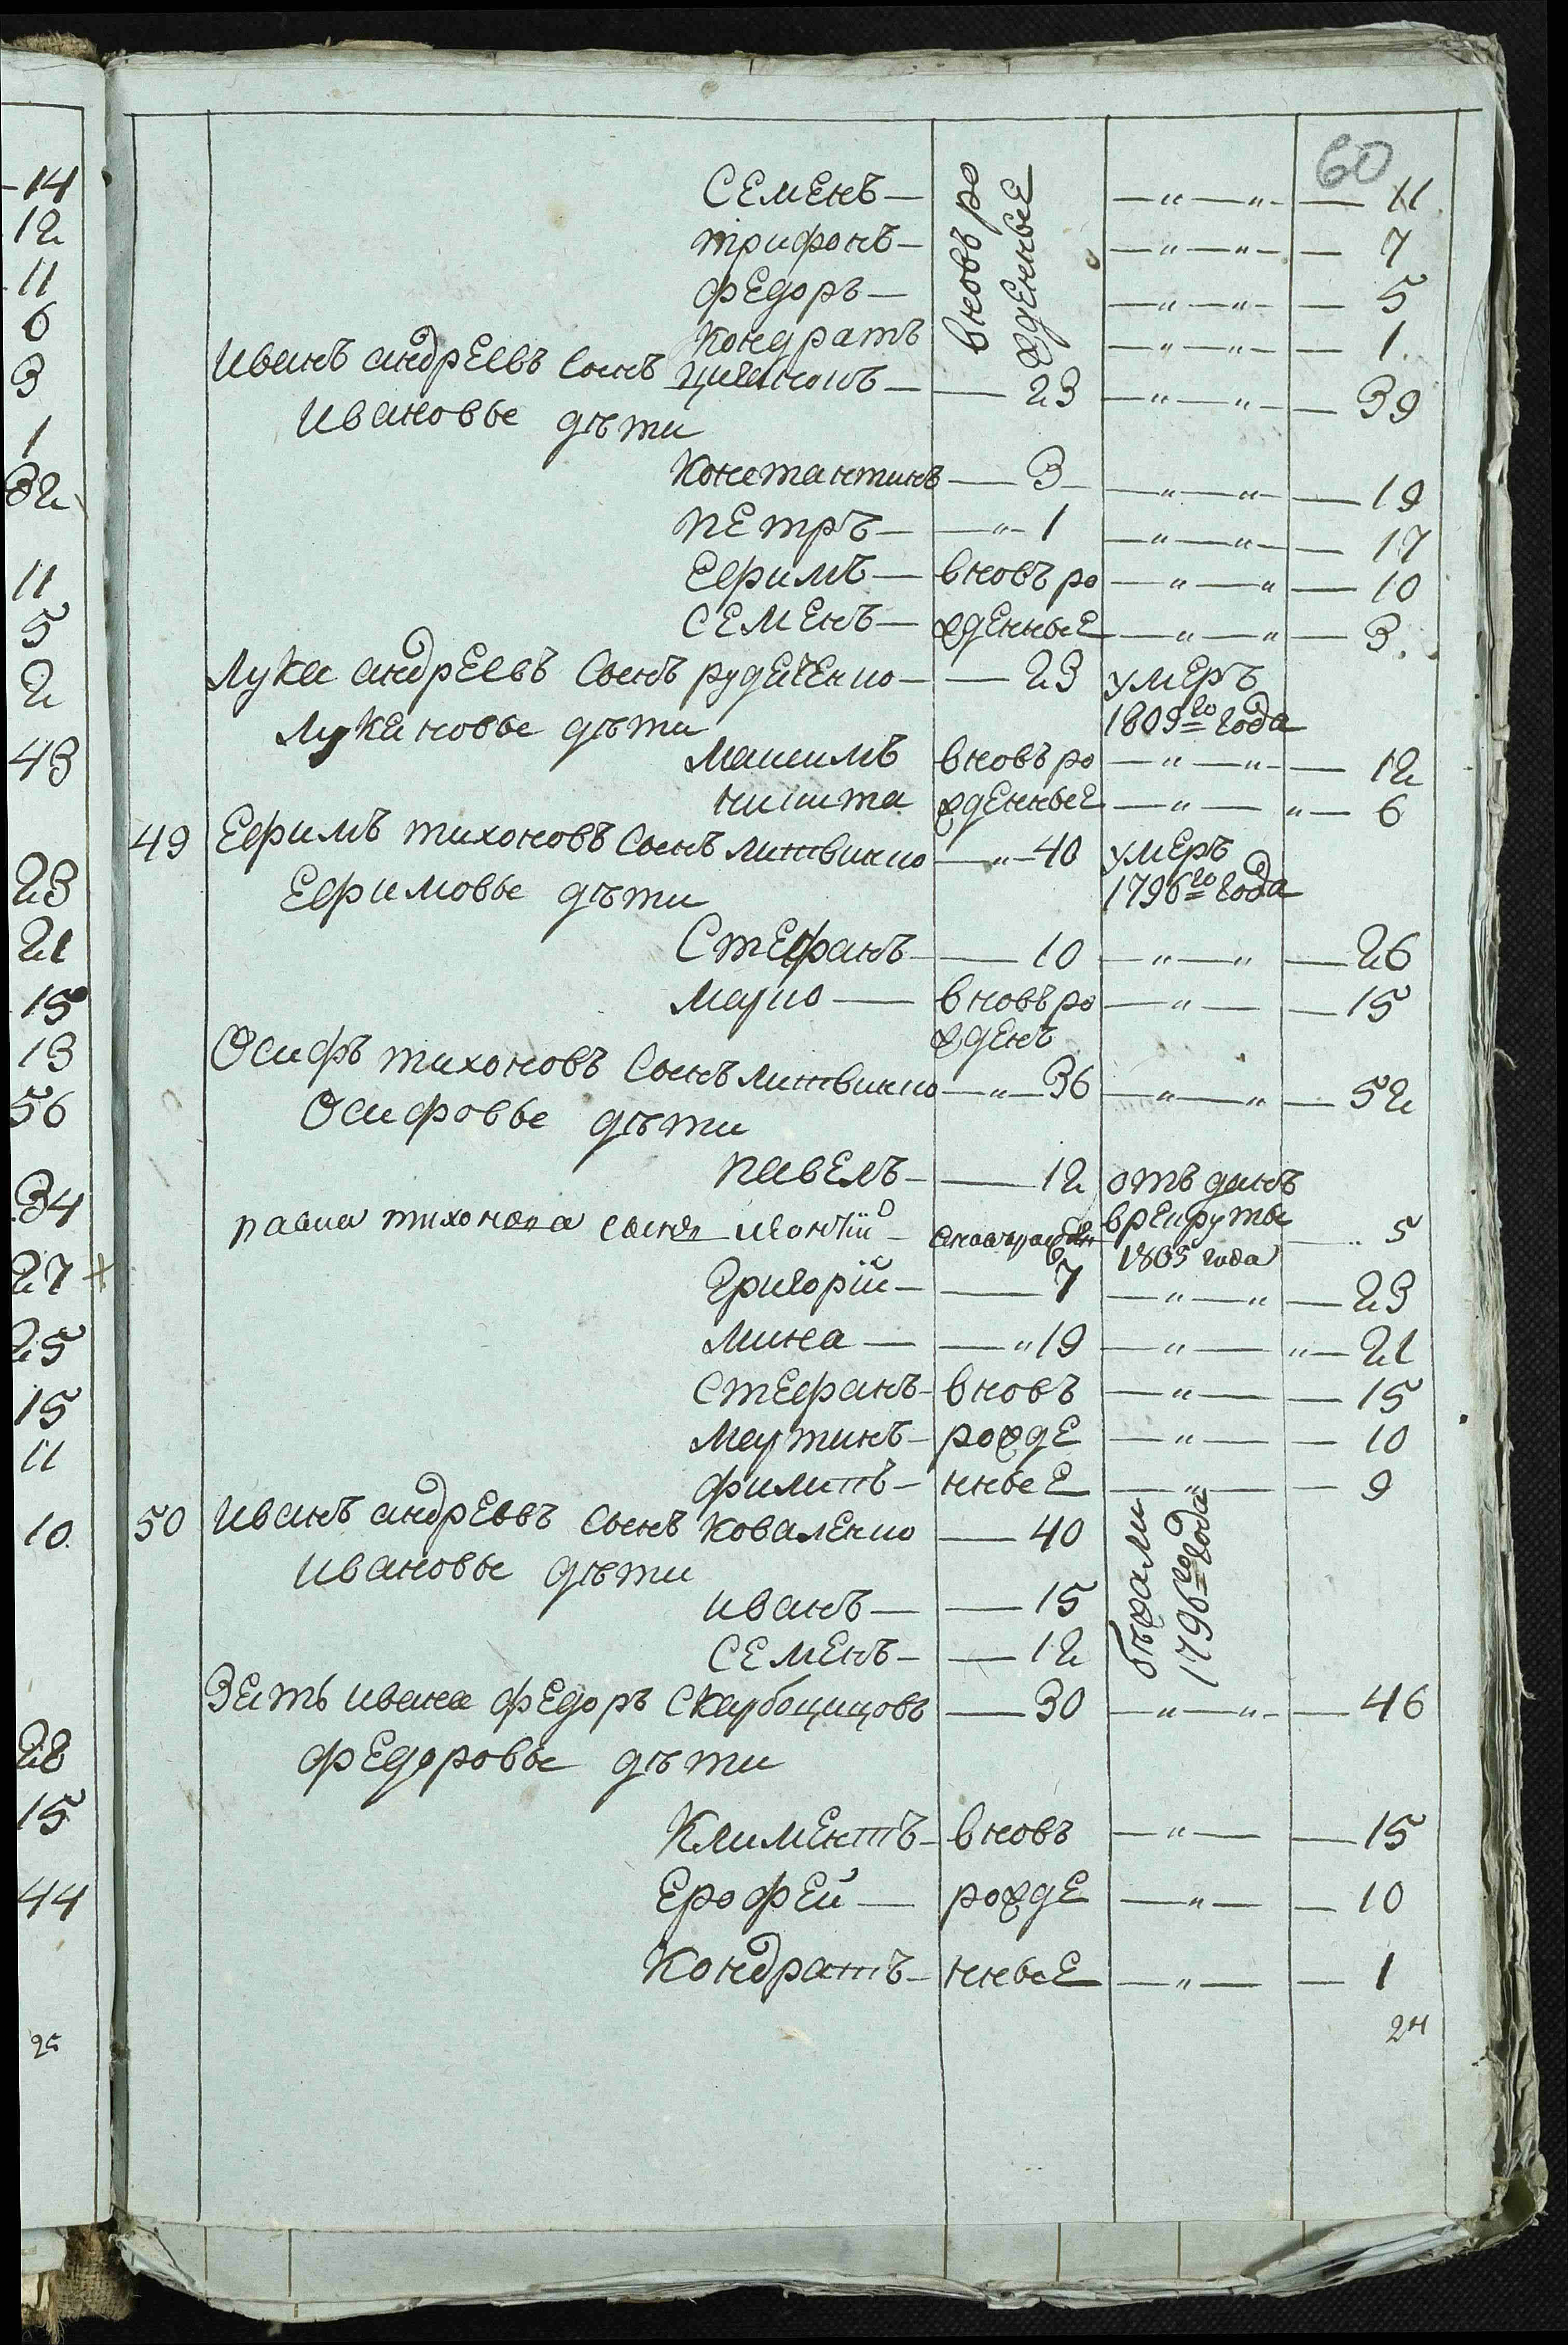 60
Семенъ — вновь ро —"—"— 11
трифонъ — жденные —"—"— 7
федоръ — —"—"— 5
Кондратъ —"—"— 1
Иванъ андреевъ сынъ — 23 —"—"— 39
Ивановые дѣти
Константинъ — 3 —"—"— 19
петръ —"— 1 —"—"— 17
Ефимъ — вновь ро —"—"— 10
Семенъ — жденные —"—"— 3
Лука андреевъ сынъ руденченко — 23 умеръ
1809го года
Лукановые дѣти
Максимъ вновь ро —"—"— 12
никита жденные —"—"— 6
49 Ефимъ тихоновъ сынъ литвинко —"— 40 умеръ
1796го года
Ефимовые дѣти
Стефанъ — 10 —"—"— 26
Марко — вновь ро —"— 15
жденъ
Осифъ тихоновъ сынъ литвинко —"— 36 —"—"— 52
Осифовые дѣти
павелъ — 12 отъ данъ
врекруты
1805 года
тихонова сынъ — 5
Григорій — 7 —"—"— 23
Мина —"19 —"—"— 21
Стефанъ — вновь —"— 15
Мартинъ — рожде —"— 10
филипъ — нные —"— 9
50 Иванъ андреевъ сынъ Коваленко — 40 бѣжали
1796го года
Ивановые дѣти
иванъ — 15
Семенъ — 12
Зять ивана федоръ Скарбощицовъ — 30 —"—"— 46
федоровые дѣти
Климентъ — вновь —"— 15
Ерофей — рожде —"— 10
Кондратъ — нные —"— 1
24
14
12
11
6
3
1
32
11
5
2
43
23
21
15
13
56
34
27 +
25
15
11
10
28
15
44
25